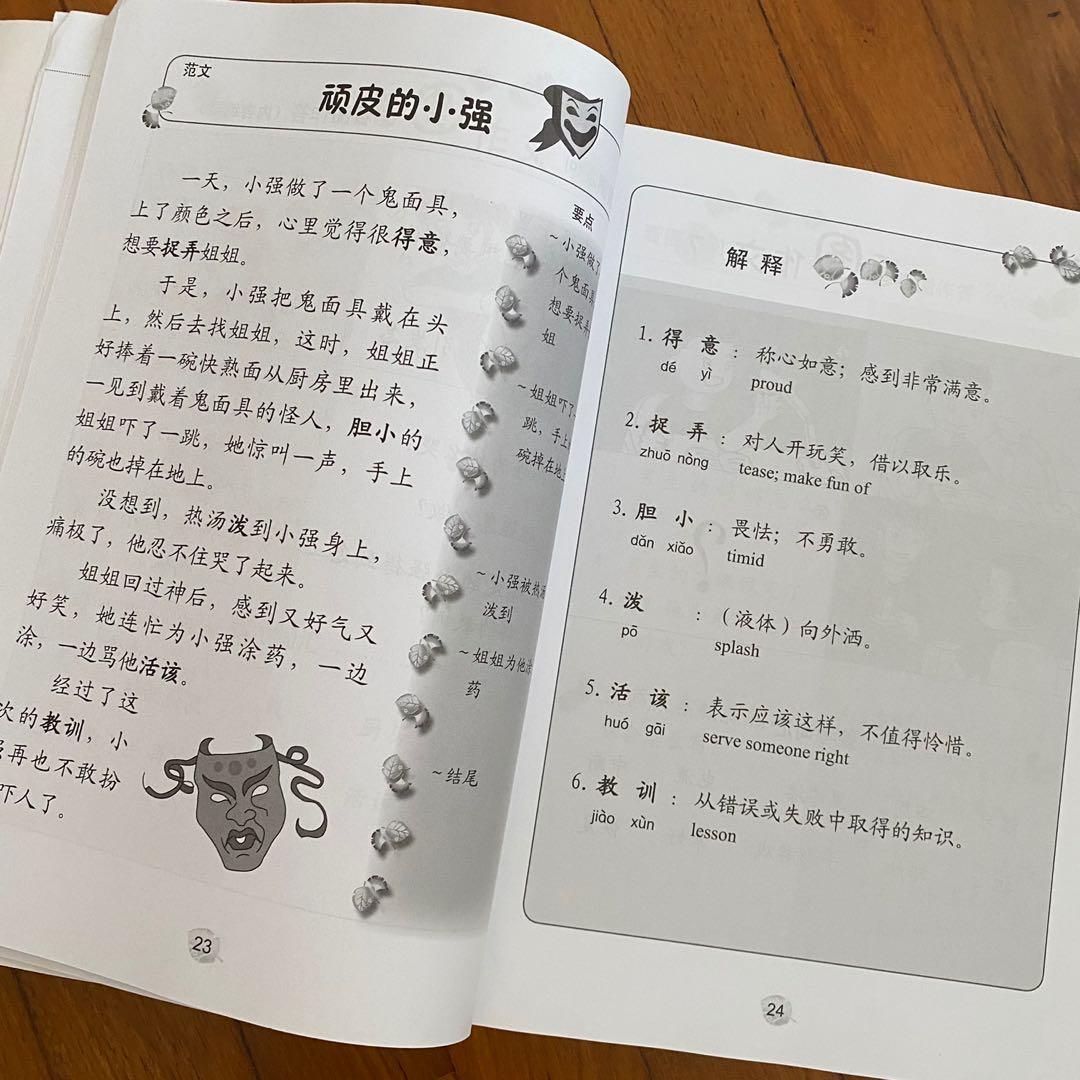 范文
顽皮的小强
一天，小强做了一个鬼面具，
上了颜色之后，心里觉得很得意，
想要捉弄姐姐。
于是，小强把鬼面具戴在头
上，然后去找姐姐，这时，姐姐正
好捧着一碗快熟面从厨房里出来，
一见到戴着鬼面具的怪人，胆小的
姐姐吓了一跳，她惊叫一声，手上
的碗也掉在地上。
没想到，热汤泼到小强身上，
痛极了，他忍不住哭了起来。
姐姐回过神后，感到又好气又
好笑，她连忙为小强涂药，一边
涂，一边骂他活该。
经过了这
次的教训，小
强再也不敢扮
吓人了。
23
要点
~小强做了
个鬼面具
想要捉弄
姐
~姐姐吓了
跳，手上
碗掉在地上
~小强被热
泼到
~姐姐为他
药
~结尾
解释
1. 得意：称心如意；感到非常满意。
dé yì proud
2. 捉弄：对人开玩笑，借以取乐。
zhuō nòng tease; make fun of
3. 胆小：畏怯；不勇敢。
dǎn xiǎo timid
4. 泼：（液体）向外洒。
pō splash
5. 活该：表示应该这样，不值得怜惜。
huó gāi serve someone right
6. 教训：从错误或失败中取得的知识。
jiào xùn lesson
24